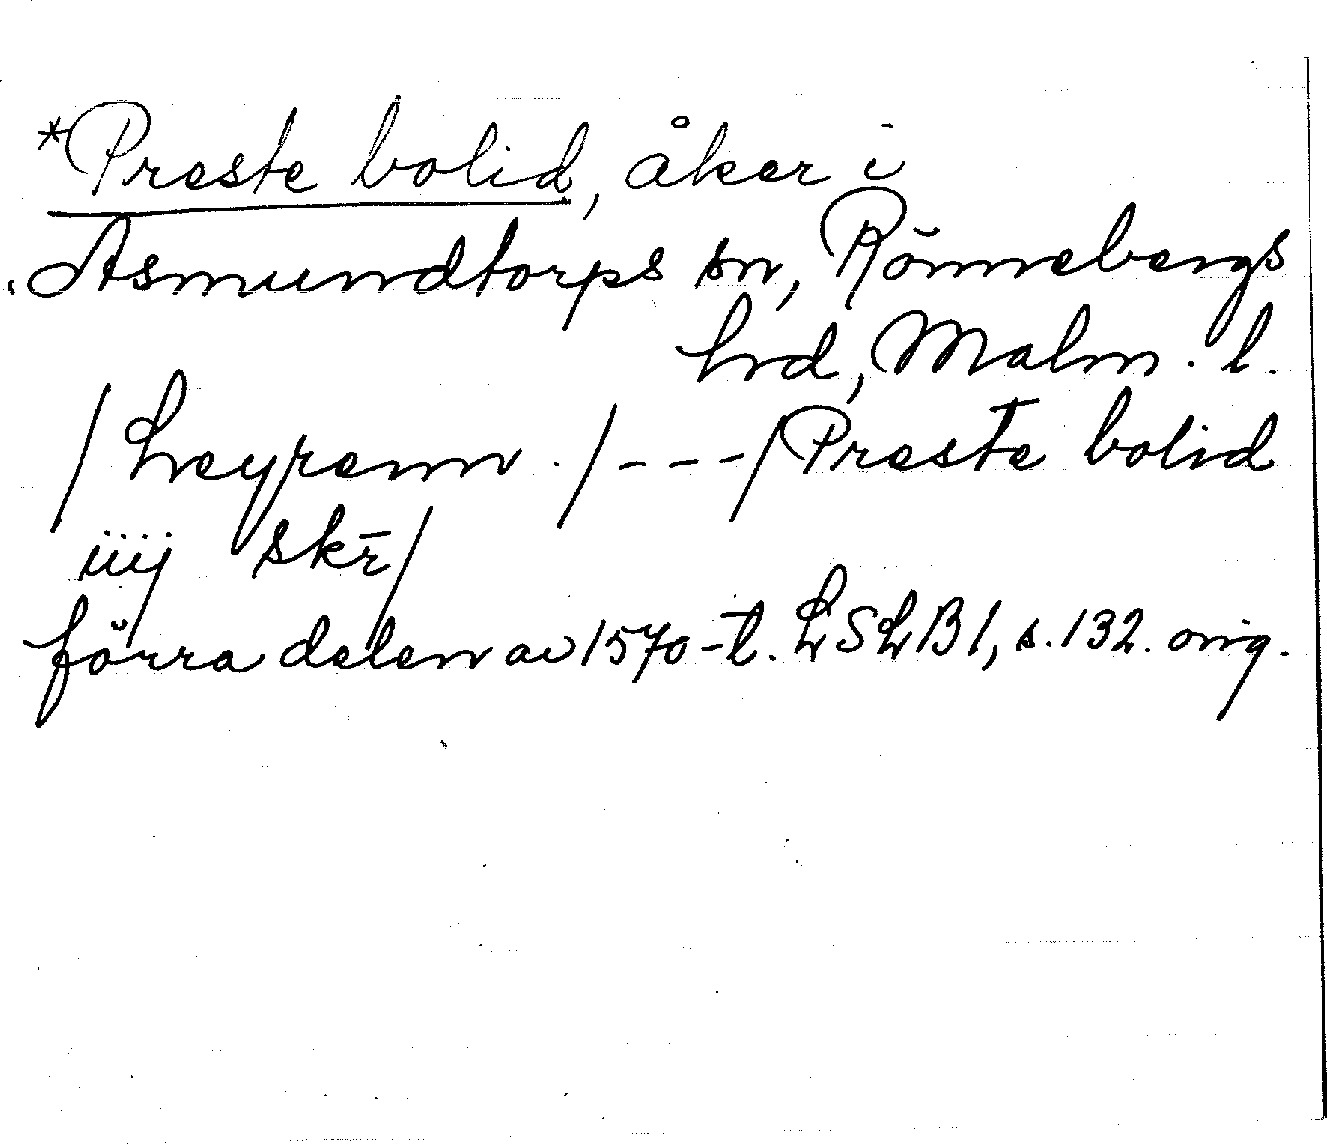 *Preste bolid, åker i
Asmundtorps sn, Rönnebergs
hrd, Malm. l.
/ heyrenn . / - - - / Preste bolid
iiij skr̄ /
förra delen av 1570-t. LSLB 1, s. 132. orig.